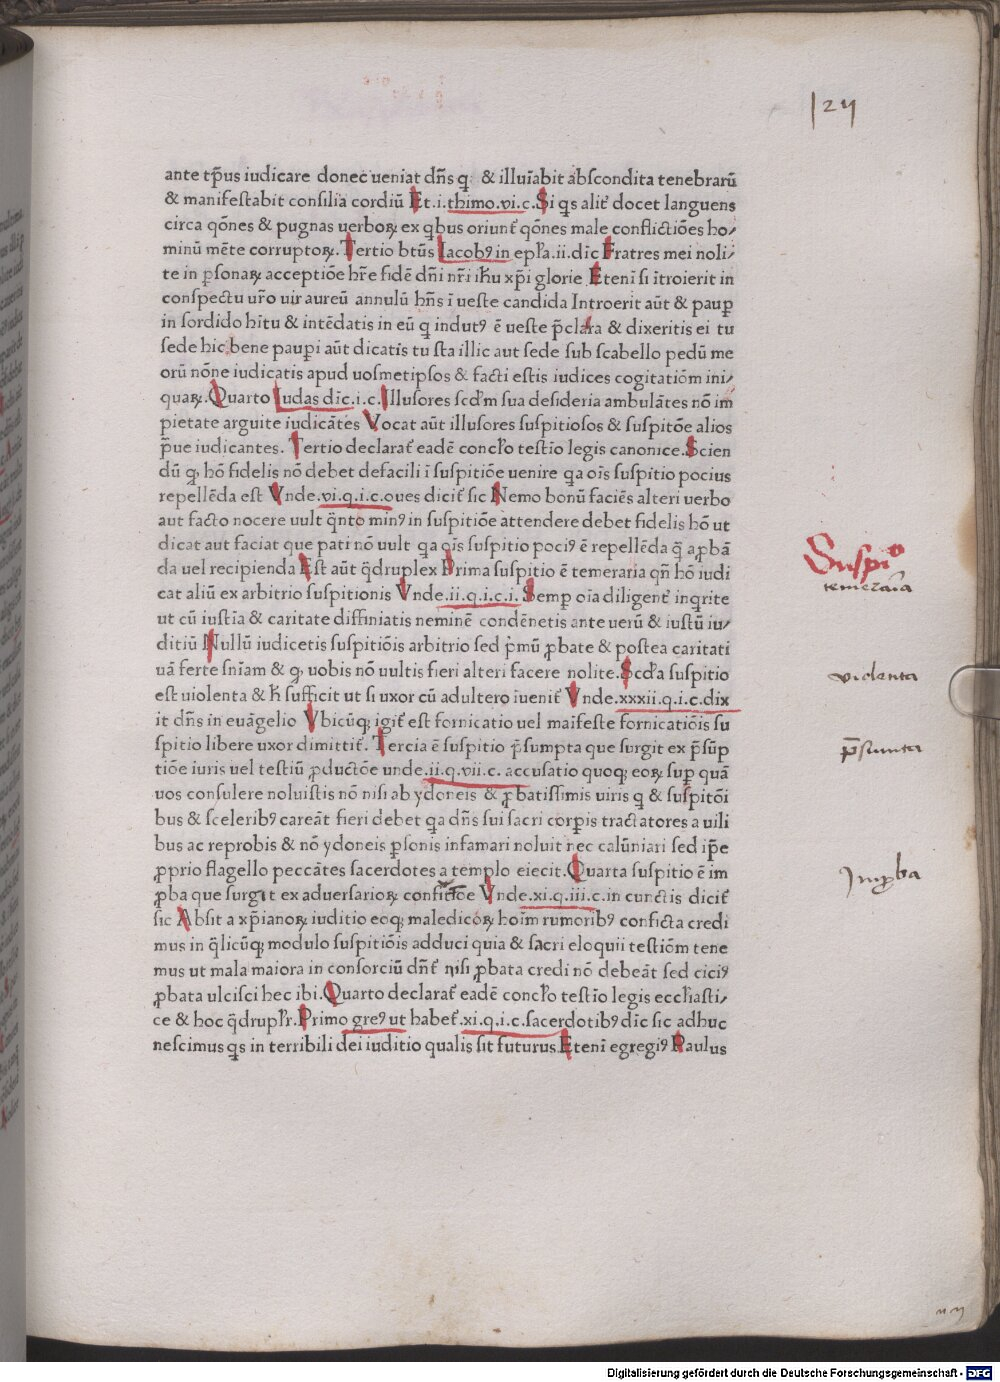 124
ante tp̄us iudicare donec ueniat dn̄s q̨ & illuīabit abscondita tenebrarū
& manifestabit consilia cordiū Et.i.thimo.vi.c.Si qs alit̄ docet languens
circa qōnes & pugnas uerboꝝ ex qbus oriunt̄ qōnes male conflictiōes ho/
minū mēte corruptoꝝ.Tertio btūs Iacobꝰ in ep̄la.ii.dic̄ Fratres mei noli/
te in ꝑsonaꝝ acceptiōe hr̄e fidē dn̄i nr̄i ih̄u xp̄i glorie Etenī si ītroierit in
conspectu ur̄o uir aureū annulū hn̄s ī ueste candida Introerit aūt & pauꝑ
in sordido hītu & intēdatis in eū q indutꝰ ē ueste p̄clara & dixeritis ei tu
sede hic bene pauꝑi aūt dicatis tu sta illic aut sede sub scabello pedū me
orū nōne iudicatis apud uosmetipsos & facti estis iudices cogitatiōm ini/
quaꝝ.Quarto Iudas dic̄.i.c.Illusores scd̄m sua desideria ambulātes nō im
pietate arguite iudicātes Vocat aūt illusores suspitiosos & suspitōe alios
p̄ue iudicantes. Tertio declarat̄ eadē concl̄o testīo legis canonice.Scien
dū ꝙ hō fidelis nō debet defacili ī suspitiōe uenire qa oīs suspitio pocius
repellēda est Vnde.vi.q.i.c.oues dicit̄ sic Nemo bonū faciēs alteri uerbo
aut facto nocere uult q̄nto minꝰ in suspitiōe attendere debet fidelis hō ut
dicat aut faciat que pati nō uult qa oīs suspitio pociꝰ ē repellēda q̄ aꝓbā
da uel recipienda Est aūt q̄druplex Prima suspitio ē temeraria qn̄ hō iudi
cat aliū ex arbitrio suspitionis Vnde.ii.q.i.c.i.Semꝑ oīa diligent̄ inqrite
ut cū iustīa & caritate diffiniatis neminē condēnetis ante uerū & iustū iu/
ditiū Nullū iudicetis suspitiōis arbitrio sed p̄mū ꝓbate & postea caritati
uā ferte sn̄iam & ꝙ uobis nō uultis fieri alteri facere nolite.Scd̄a suspitio
est uiolenta & h̄ sufficit ut si uxor cū adultero īuenit̄ Vnde.xxxii.q.i.c.dix
it dn̄s in euāgelio Vbicūq; igit̄ est fornicatio uel maīfeste fornicatiōis su
spitio libere uxor dimittit̄. Tercia ē suspitio p̄sumpta que surgit ex p̄sūp
tiōe iuris uel testiū ꝓductōe unde.ii.q.vii.c. accusatio quoq; eoꝝ suꝑ quā
uos consulere noluistis nō nisi ab ydoneis & ꝓbatissimis uiris q & suspitōi
bus & sceleribꝰ careāt fieri debet qa dn̄s sui sacri corꝑis tractatores a uili
bus ac reprobis & nō ydoneis ꝑsonis infamari noluit nec calūniari sed ip̄e
ꝓprio flagello peccātes sacerdotes a templo eiecit.Quarta suspitio ē im
ꝓba que surgit ex aduersarioꝝ confictōe Vnde.xi.q.iii.c.in cunctis dicit̄
sic Absit a xp̄ianoꝝ iuditio eoq; maledicoꝝ hoīm rumoribꝰ conficta credi
mus in q̄licūq; modulo suspitiōis adduci quia & sacri eloquii testiōm tene
mus ut mala maiora in consorciū dn̄t nisi ꝓbata credi nō debeāt sed ciciꝰ
ꝓbata ulcisci hec ibi.Quarto declarat̄ eadē concl̄o testīo legis eccl̄iasti/
ce & hoc q̄drupl̄r.Primo greꝰ ut habet̄.xi.q.i.c.sacerdotibꝰ dic̄ sic adhuc
nescimus qs in terribili dei iuditio qualis sit futurus Etenī egregiꝰ Paulus
Suspiᵒ
temeraria
violenta
p̄sumta
Imꝓba
Digitalisierung gefördert durch die Deutsche Forschungsgemeinschaft - DFG